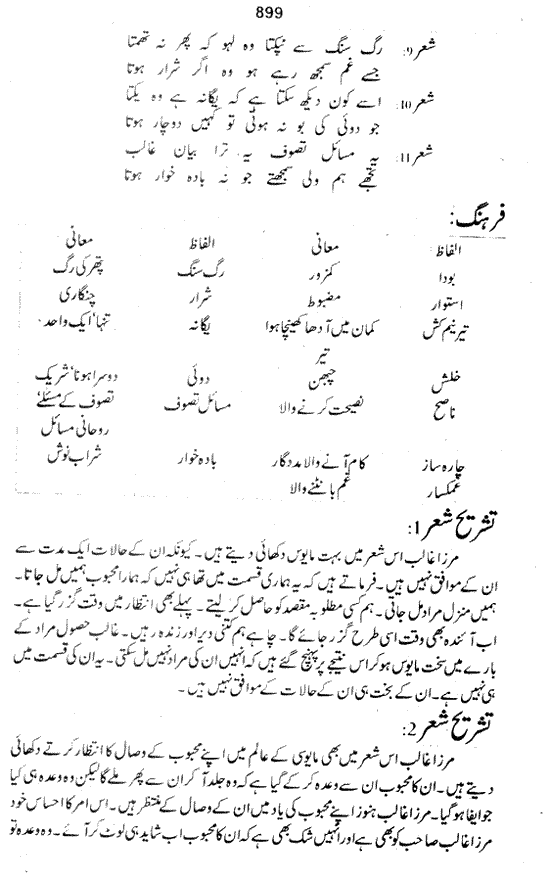 899
شعر9: رگ سنگ سے ٹپکتا وہ لہو کہ پھر نہ تھمتا
جسے غم سمجھ رہے ہو وہ اگر شرار ہوتا
شعر10: اسے کون دیکھ سکتا ہے کہ یگانہ ہے وہ یکتا
جو دوئی کی بو نہ ہوتی تو کہیں دوچار ہوتا
شعر11: یہ مسائل تصوف یہ ترا بیان غالب
تجھے ہم ولی سمجھتے جو نہ بادہ خوار ہوتا
فرہنگ:
الفاظ معانی الفاظ معانی
بودا کمزور رگ سنگ پتھر کی رگ
استوار مضبوط شرار چنگاری
تیر نیم کش کمان میں آدھا کھینچا ہوا یگانہ تنہا' ایک واحد
تیر
خلش چبھن دوئی دوسرا ہونا' شریک
ناصح نصیحت کرنے والا مسائل تصوف تصوف کے مسئلے'
روحانی مسائل
چارہ ساز کام آنے والا مددگار بادہ خوار شراب نوش
غمگسار غم بانٹنے والا
تشریح شعر 1:
مرزا غالب اس شعر میں بہت مایوس دکھائی دیتے ہیں۔ کیونکہ ان کے حالات ایک مدت سے
ان کے موافق نہیں ہیں۔ فرماتے ہیں کہ یہ ہماری قسمت میں تھا ہی نہیں کہ ہمارا محبوب ہمیں مل جاتا۔
ہمیں منزل مراد مل جاتی۔ ہم کسی مطلوبہ مقصد کو حاصل کر لیتے۔ پہلے بھی انتظار میں وقت گزر گیا ہے۔
اب آئندہ بھی وقت اسی طرح گزر جائے گا۔ چاہے ہم کتنی دیر اور زندہ رہیں۔ غالب حصول مراد کے
بارے میں سخت مایوس ہو کر اس نتیجے پر پہنچ گئے ہیں کہ انہیں ان کی مراد نہیں مل سکتی۔ یہ ان کی قسمت میں
ہی نہیں ہے۔ ان کے بخت ہی ان کے حالات کے موافق نہیں ہیں۔
تشریح شعر 2:
مرزا غالب اس شعر میں بھی مایوسی کے عالم میں اپنے محبوب کے وصال کا انتظار کرتے دکھائی
دیتے ہیں۔ ان کا محبوب ان سے وعدہ کر کے گیا ہے کہ وہ جلد آ کر ان سے پھر ملے گا لیکن وہ وعدہ ہی کیا
جو ایفا ہو گیا۔ مرزا غالب ہنوز اپنے محبوب کی یاد میں ان کے وصال کے منتظر ہیں۔ اس امر کا احساس خود
مرزا غالب صاحب کو بھی ہے اور انہیں شک بھی ہے کہ ان کا محبوب اب شاید ہی لوٹ کر آئے۔ وہ وعدہ تو